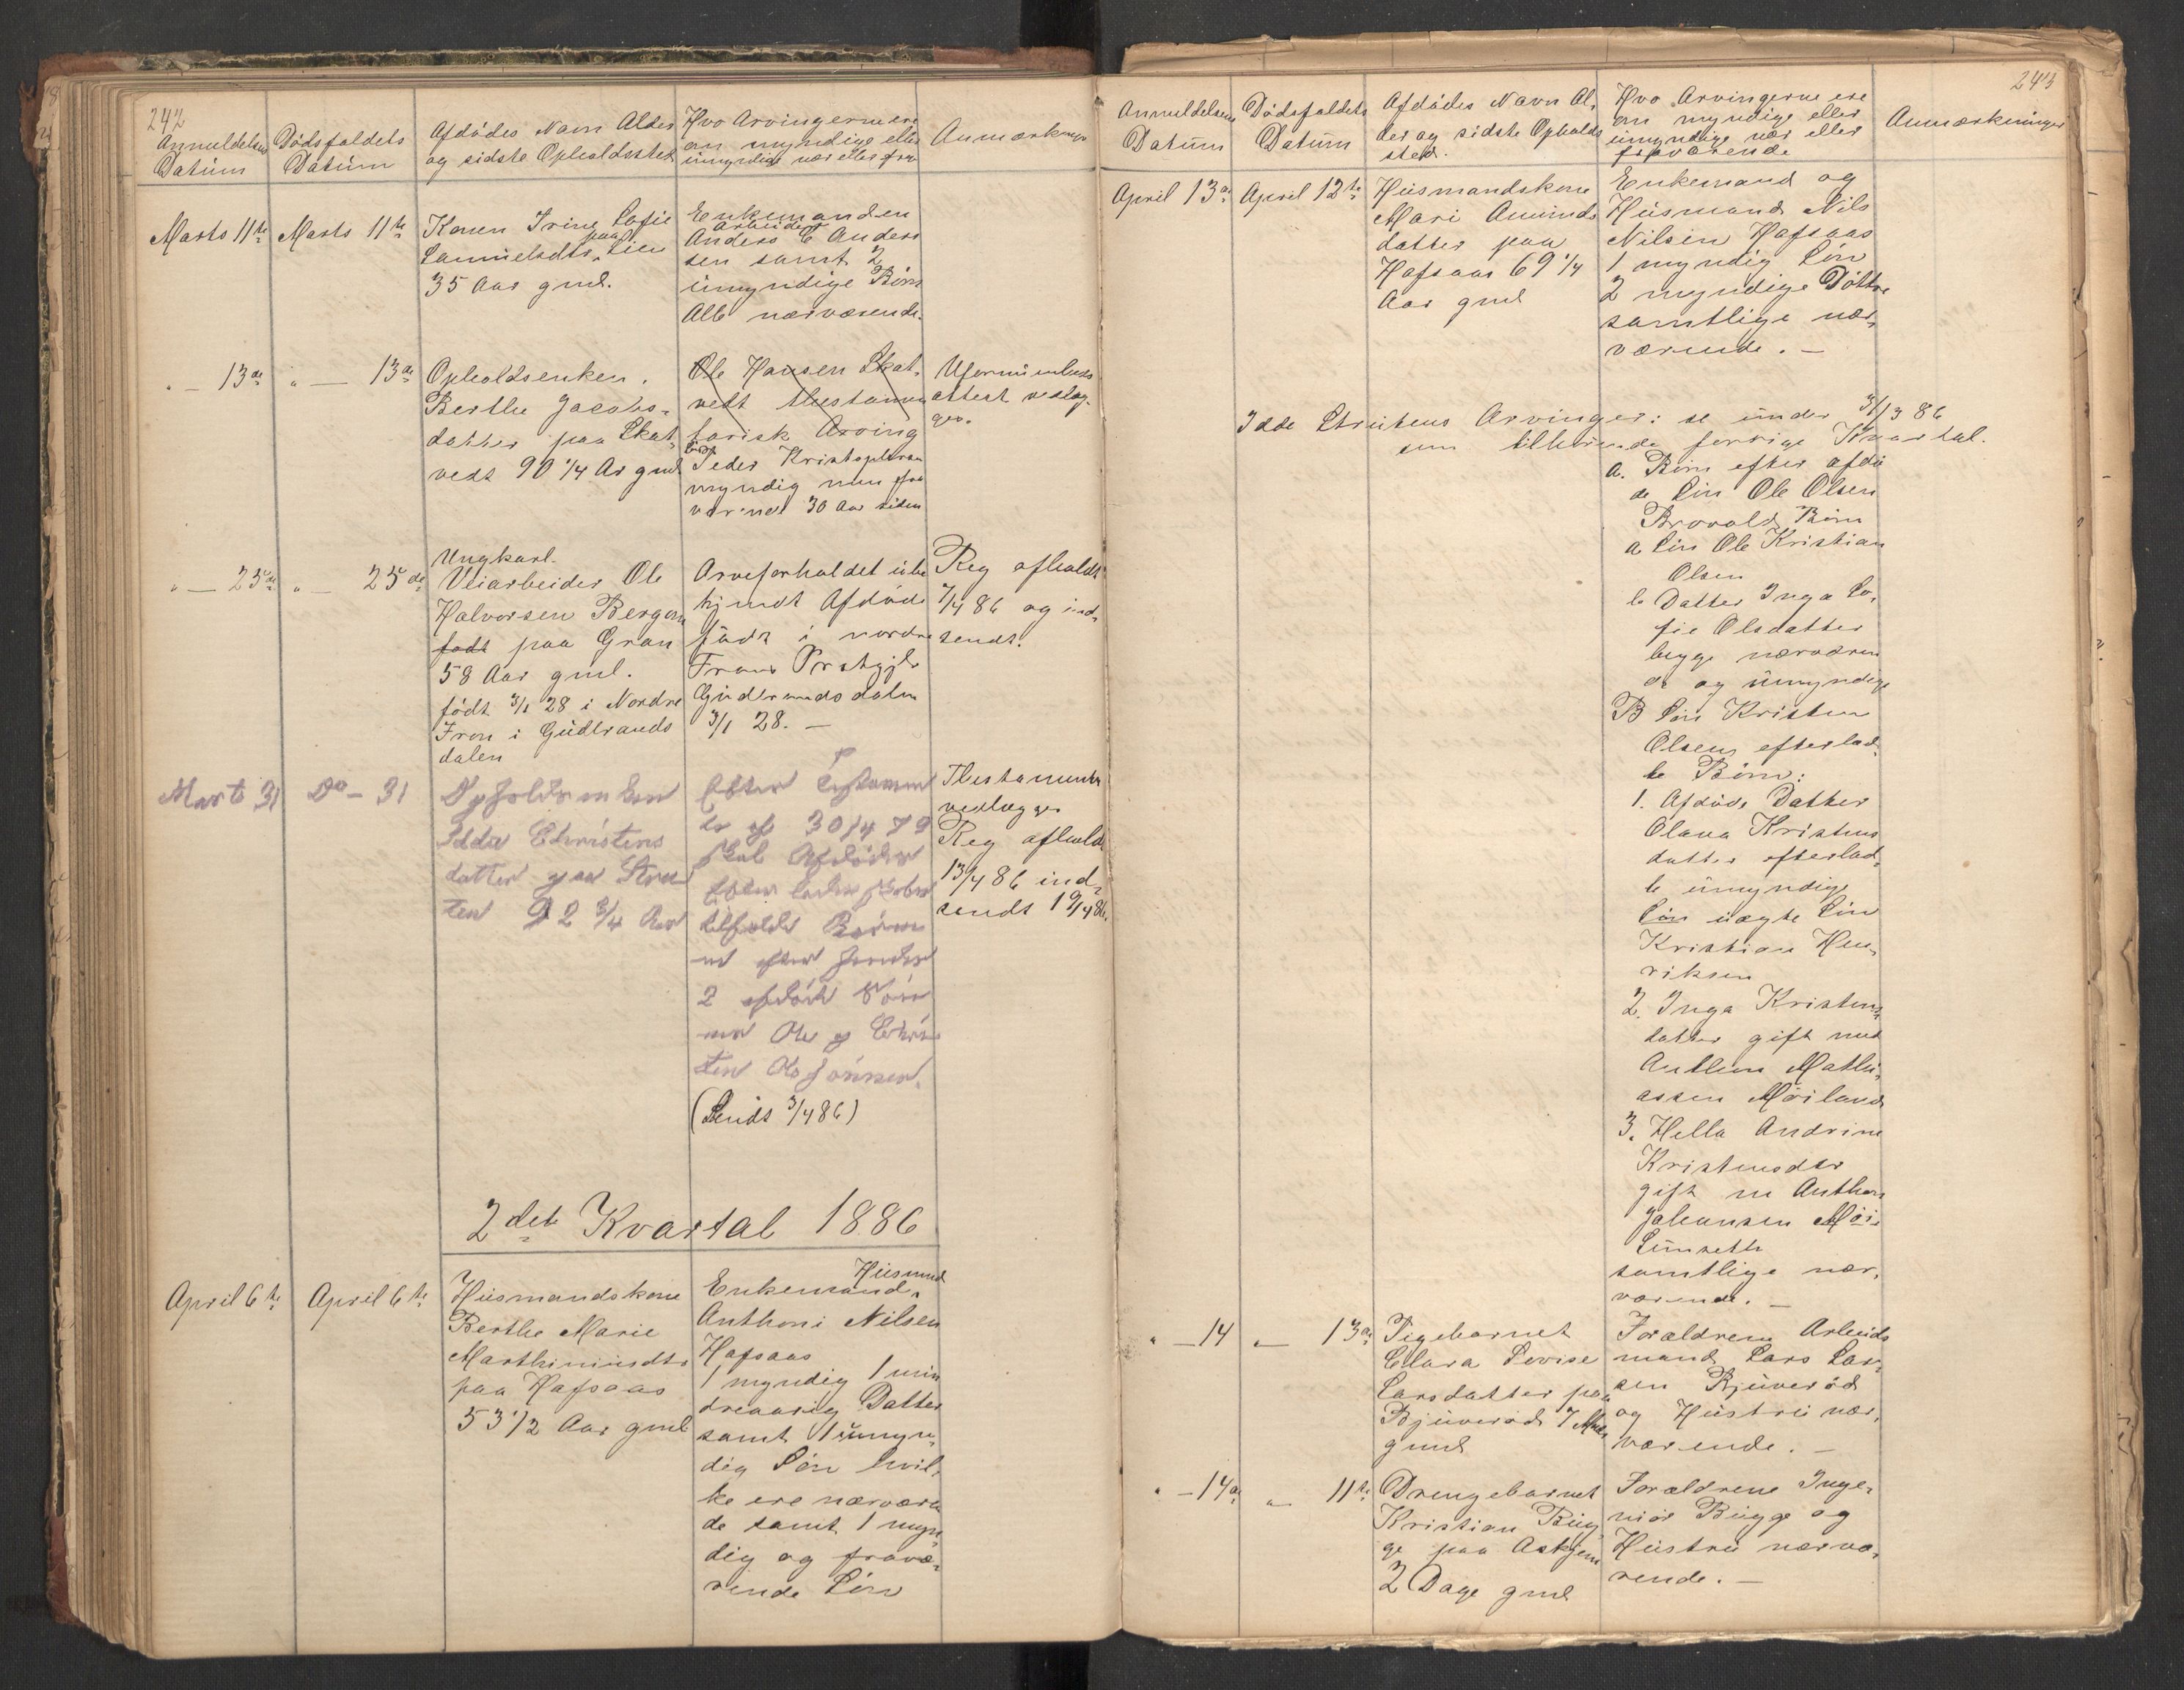 242
Anmeldelses Datum
Dødsfaldets Datum
Afdødes Navn Alder
og sidste Opholdssted
Hvo Arvingerne ere
om myndige eller
umyndige nær eller fra
Anmærkninger
Marts 11te
Marts 11te
Konen Irine Sofie
Samuelsdtr. paa Lien
35 Aar gml.
Enkemanden
Arbeider
Anders E Anders
sen samt 2
umyndige Børn
Alle nærværende.
" — 13de
" — 13de
Opholdsenken.
Berthe Jacobs-
datter paa Skat-
vedt 90 1/4 Ar gml
Ole Hansen Skat-
vedt thestamen
tarisk Arving
Peder Kristophersen
myndig men fra
værende 30 Aar siden
Uformuenheds
attest vedlag-
ges.
" — 25de
" — 25de
Ungkarl.
Veiarbeider Ole
Halvorsen Bergom
født paa Gran
58 Aar gml.
født 3/1 28 i Nordre
Fron i Gudbrands
dalen
Arveforholdet ube
kjendt Afdøde
født i nordre
Frons Prstgjld
Gudbrandsdalen
3/1 28. —
Reg afholdt
7/4 86 og ind-
sendt.
Marts 31
Do — 31
Opholdsenken
Idda Christens
datter paa Stru
ten 92 3/4 Aar
Efter Testamen
te af 30/4 79
skal Afdødes
Efterladenskaber
tilfalde Børne
ne efter hendes
2 afdøde Søn
ner Ole og Chris
ten Olssønner.
(Sendt 3/4 86)
Thestamentet
vedlægges
Reg afholdt
13/4 86 ind-
sendt 19/4 86.
2det Kvartal 1886
April 6te
April 6te
Husmandskone
Berthe Marie
Marthinusdtr
paa Hafsaas
53 1/2 Aar gml
Enkemand, Husmand
Anthoni Nilsen
Hafsaas
1 myndig 1 min
dreaarig Datter
samt 1 umyn-
dig Søn hvil-
ke ere nærværen
de samt 1 myn-
dig og fravæ-
rende Søn
243
Anmeldelsens
Datum
Dødsfaldets
Datum
Afdødes Navn Al-
der og sidste Opholds
sted.
Hvo Arvingerne ere
om myndige eller
umyndige nær eller
fraværende
Anmærkninger
April 13de
April 12te
Husmandskone
Mari Amunds
datter paa
Hafsaas 69 1/4
Aar gml
Enkemand og
Husmand Nils
Nilsen Hafsaas
1 myndig Søn
2 myndige Døttre
samtlige nær-
værende. —
Idde Strutens Arvinger: se under 31/3 86
som tilhørende forrige Kvartal.
A. Børn efter afdø
de Søn Ole Olsen
Brovold Børn
a Søn Ole Kristian
Olsen
b Datter Inga So-
fie Olsdatter
begge nærværen
de og umyndige
B Søn Kristen
Olsens efterlad-
te Børn:
1. Afdøde Datter
Olava Kristens
datter efterlad-
te umyndige
Søn uægte Søn
Kristian Hen-
riksen
2. Inga Kristens-
datter gift med
Anthon Mathi-
assen Møiland
3. Hella Andrine
Kristensdtr
gift m Anthon
Johansen Møi-
Lunseth
samtlige nær-
værende. —
" — 14
" — 13de
Pigebarnet
Clara Lovise
Larsdatter paa
Bjuverød 7 Mdr
gml
Forældrene Arbeids
mand Lars Lar-
sen Bjuverød
og Hustru nær-
værende. —
" — 14de
" — 11te
Drengebarnet
Kristian Bug-
ge paa Askjem
2 Dage gml
Forældrene Inge-
niør Bugge og
Hustru nærvæ-
rende. —